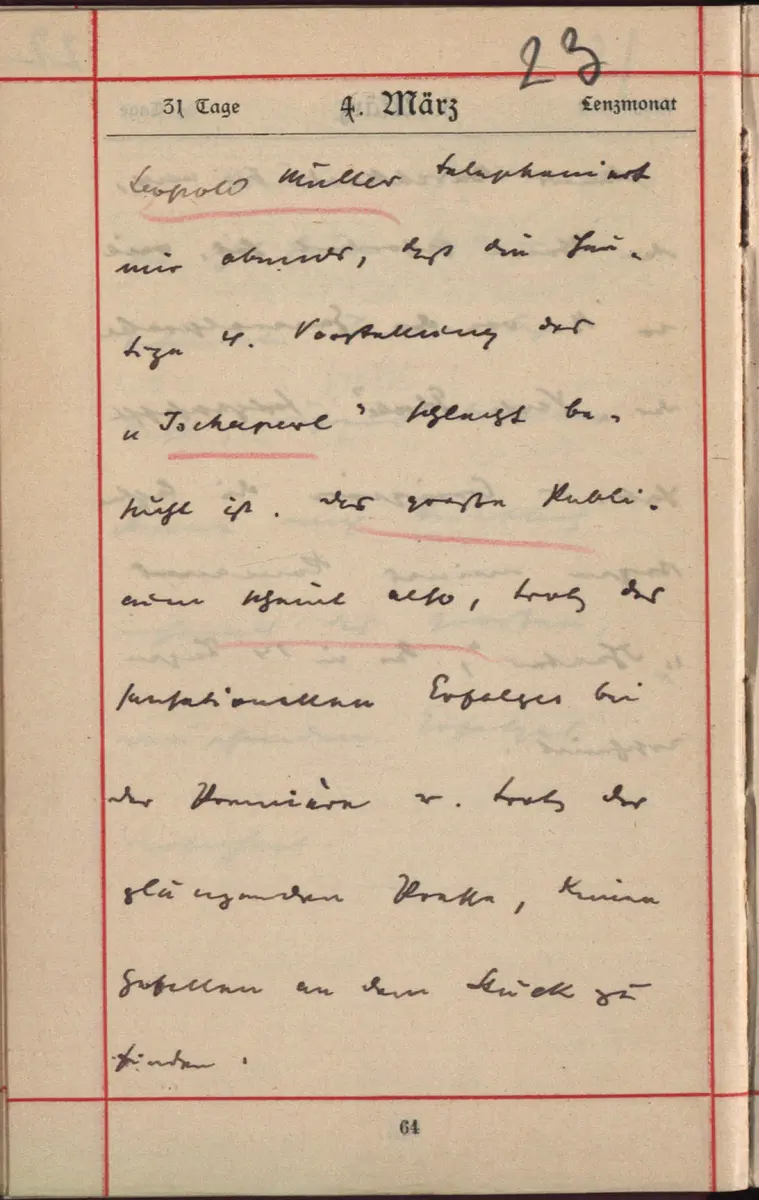 23
31 Tage 4. März Lenzmonat
Leopold Müller telephoniert
mir abends, daß die heu-
tige 4. Vorstellung des
„Tschaperl" schlecht be-
sucht ist. Das große Publi-
cum scheint also, trotz des
sensationellen Erfolges bei
der Première u. trotz der
glänzenden Presse, keinen
Gefallen an dem Stück zu
finden.
64